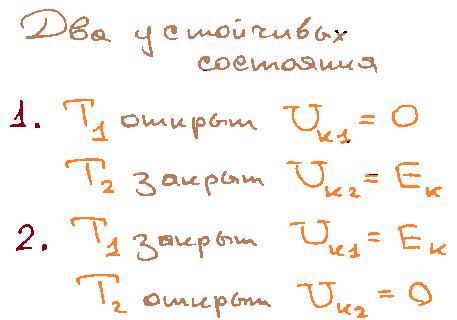 Два устойчивых
состояния
1. T₁ открыт Uк1 = 0
T₂ закрыт Uк2 = Eк
2. T₁ закрыт Uк1 = Eк
T₂ открыт Uк2 = 0